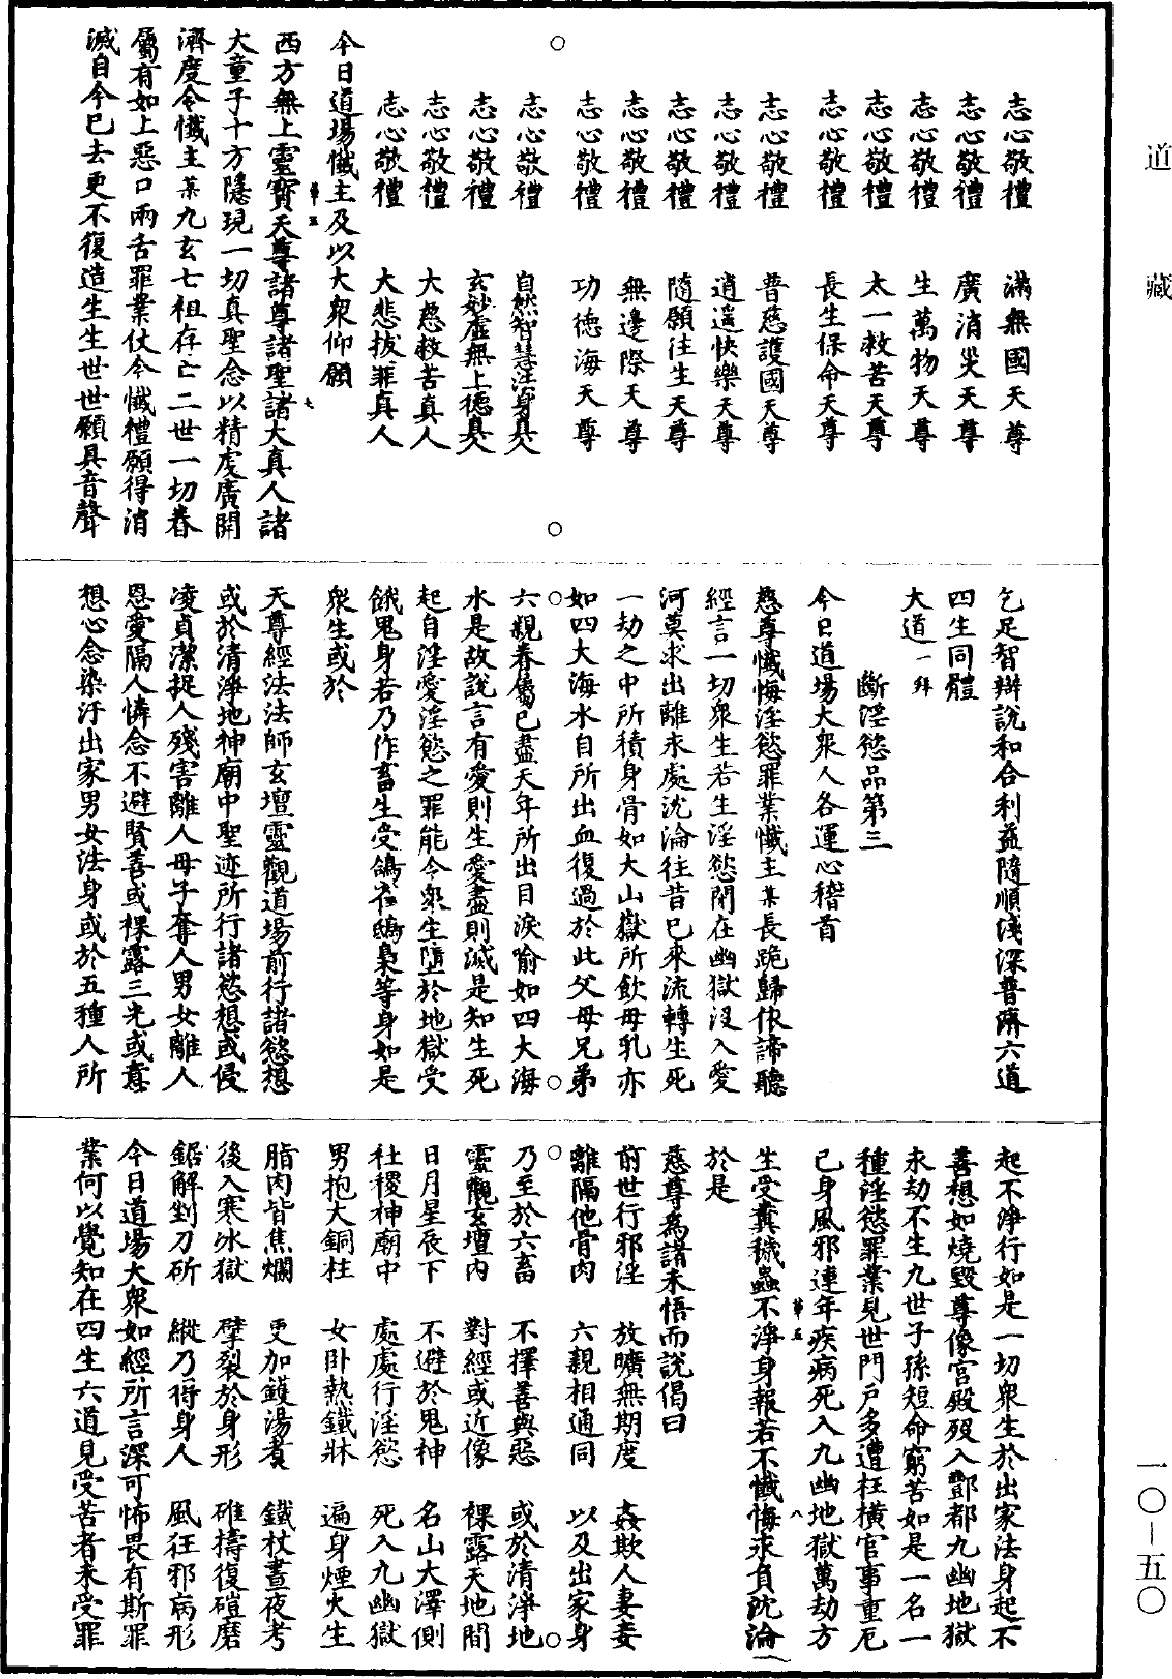 道藏
志心敬禮　滿無國天尊
志心敬禮　廣消災天尊
志心敬禮　生萬物天尊
志心敬禮　太一救苦天尊
志心敬禮　長生保命天尊
志心敬禮　普慈護國天尊
志心敬禮　逍遥快樂天尊
志心敬禮　隨願往生天尊
志心敬禮　無邊際天尊
志心敬禮　功德海天尊
志心敬禮　自然智慧法身真人
志心敬禮　玄妙虛無上德真人
志心敬禮　大慈救苦真人
志心敬禮　大悲拔罪真人
今日道場懺主及以大衆仰願
西方無上靈寶天尊諸尊諸聖諸大真人諸
大童子十方隱現一切真聖念以精虔廣開
濟度令懺主某九玄七祖存亡二世一切眷
屬有如上惡口兩舌罪業仗今懺禮願得消
滅自今已去更不復造生生世世願具音聲
乞足智辯説和合利益隨順淺深普濟六道
四生同體
大道一拜
斷淫慾品第三
今日道場大衆人各運心稽首
慈尊懺悔淫慾罪業懺主某長跪歸依諦聽
經言一切衆生若生淫慾閉在幽獄没入愛
河莫求出離未處沈淪往昔已來流轉生死
一劫之中所積身骨如大山嶽所飲母乳亦
如四大海水自所出血復過於此父母兄弟
六親眷屬已盡天年所出目淚喻如四大海
水是故説言有愛則生愛盡則滅是知生死
起自淫愛淫慾之罪能令衆生墮於地獄受
餓鬼身若乃作畜生受鴿雀鴟梟等身如是
衆生或於
天尊經法法師玄壇靈觀道場前行諸慾想
或於清淨地神廟中聖迹所行諸慾想或侵
凌貞潔捉人殘害離人母子奪人男女離人
恩愛隔人憐念不避賢善或裸露三光或意
想心念染汙出家男女法身或於五種人所
起不淨行如是一切衆生於出家法身起不
善想如燒毀尊像宫殿殁入酆都九幽地獄
永劫不生九世子孫短命窮苦如是一名一
種淫慾罪業見世門户多遭枉横官事重厄
己身風邪連年疾病死入九幽地獄萬劫方
生受糞穢蟲不淨身報若不懺悔永負沈淪
於是
慈尊爲諸未悟而説偈曰
前世行邪淫　放曠無期度　姦欺人妻妾
離隔他骨肉　六親相通同　以及出家身
乃至於六畜　不擇善與惡　或於清淨地
靈觀玄壇内　對經或近像　裸露天地間
日月星辰下　不避於鬼神　名山大澤側
社稷神廟中　處處行淫慾　死入九幽獄
男抱大銅柱　女卧熱鐵牀　遍身煙火生
脂肉皆焦爛　更加鑊湯煮　鐵杖晝夜考
後入寒冰獄　擘裂於身形　碓擣復磑磨
鋸解剉刀斫　縱乃得身人　風狂邪病形
今日道場大衆如經所言深可怖畏有斯罪
業何以覺知在四生六道見受苦者未受罪
一〇—五〇